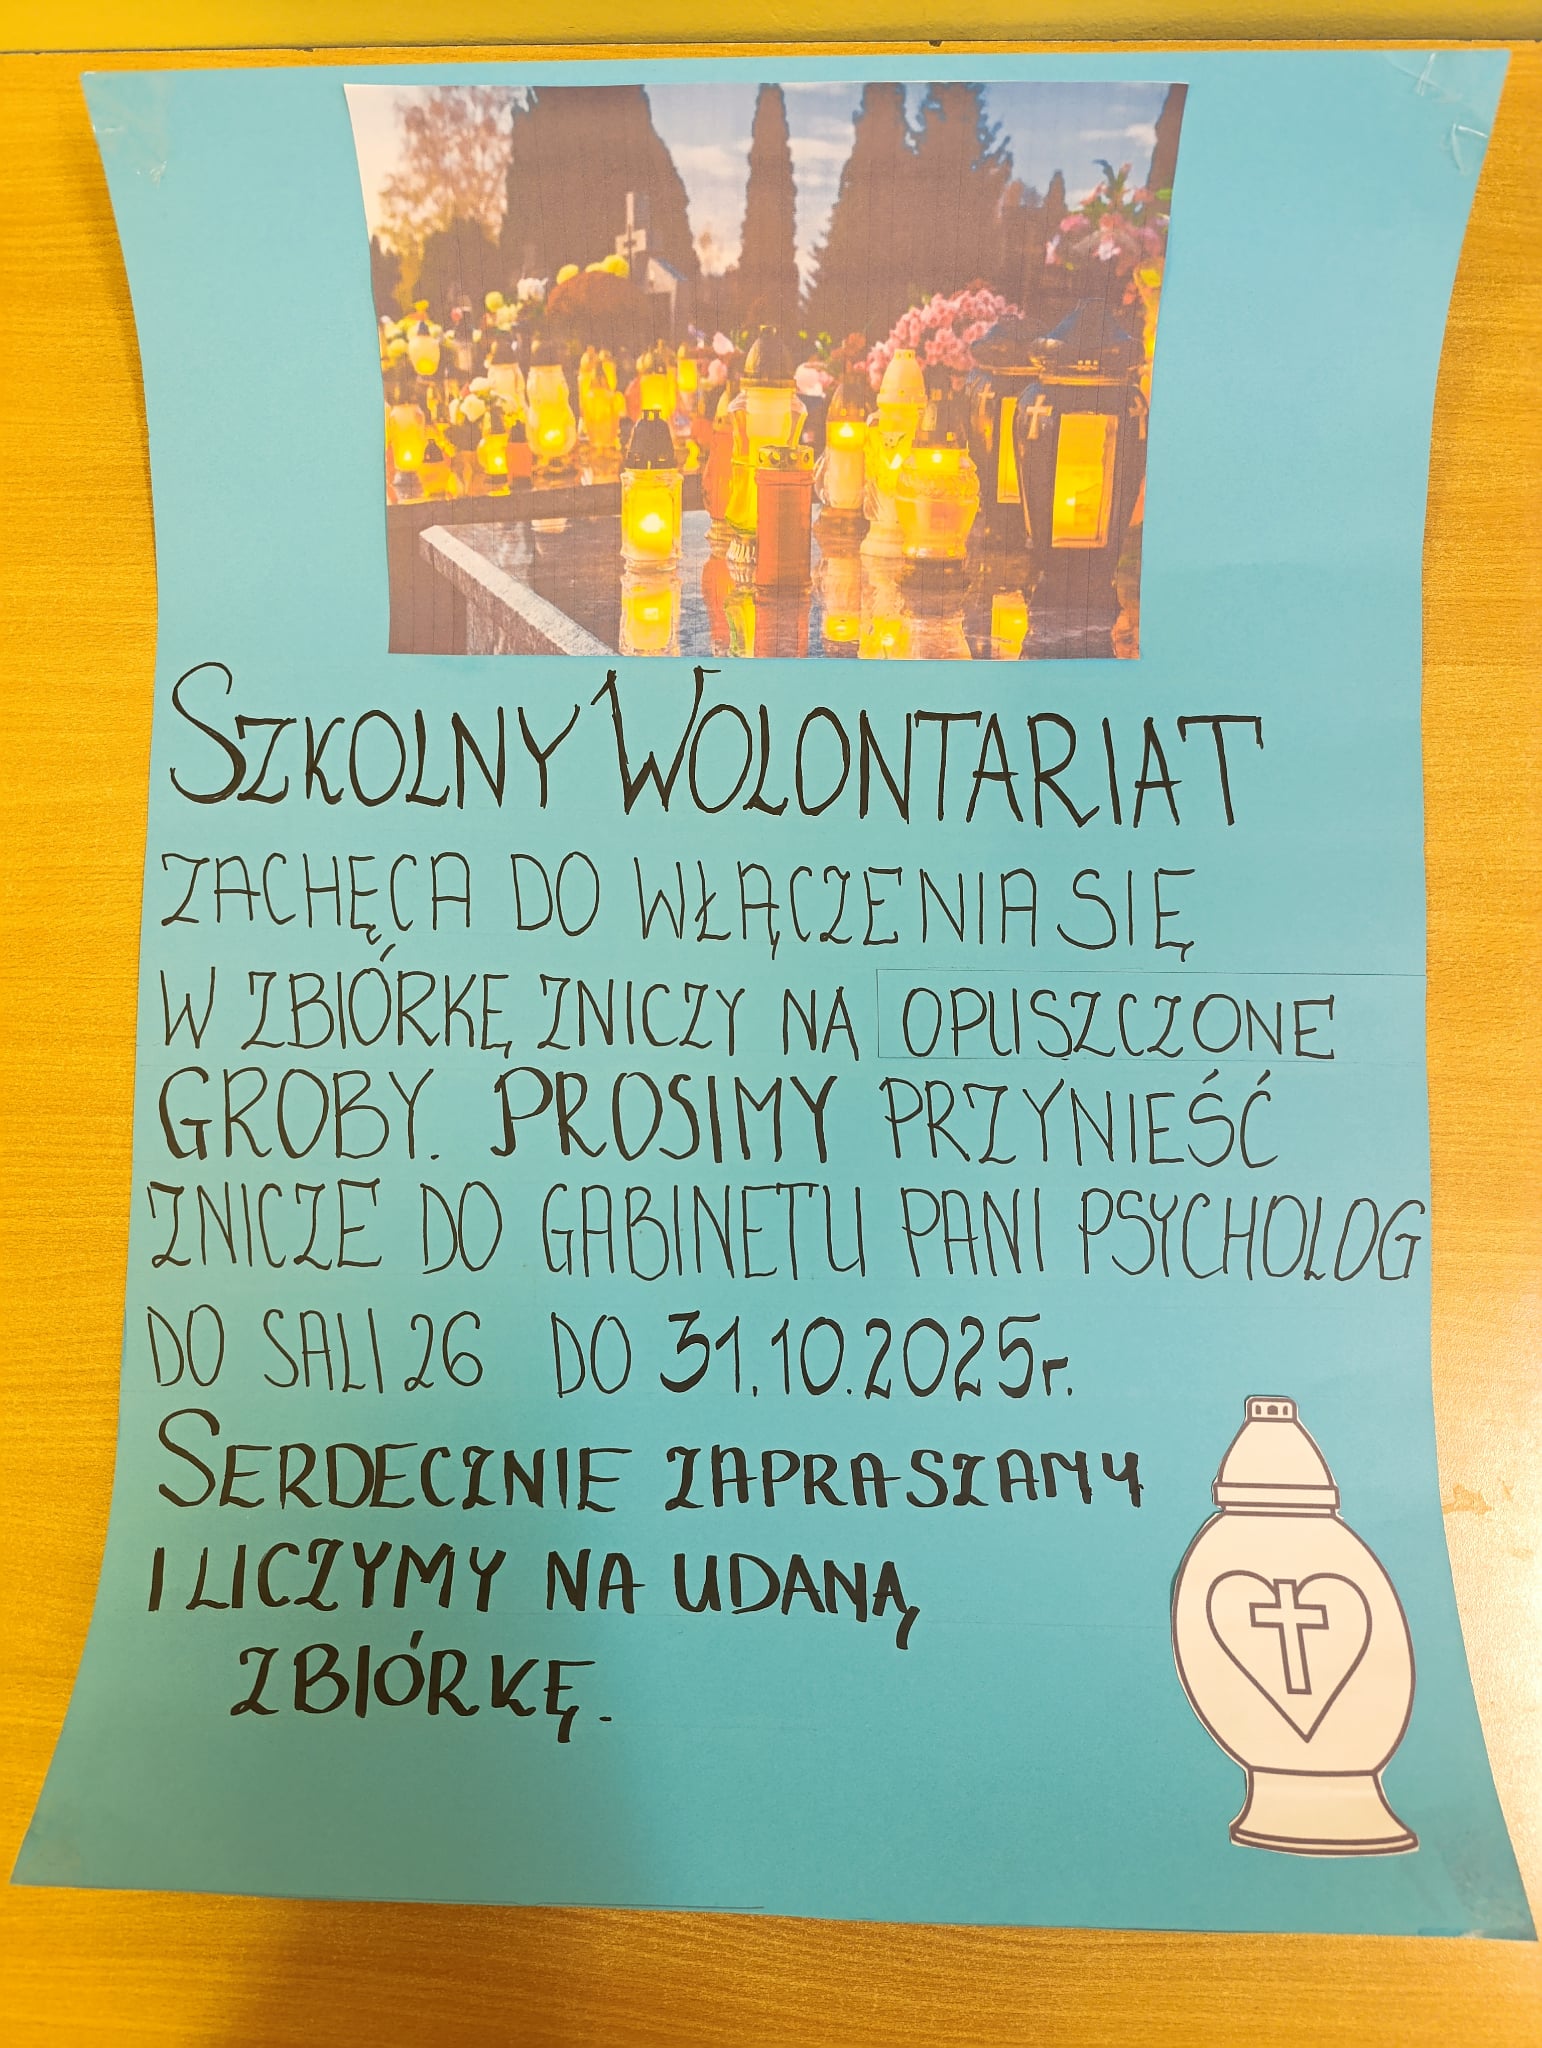 SZKOLNY WOLONTARIAT
ZACHĘCA DO WŁĄCZENIA SIĘ
W ZBIÓRKĘ ZNICZY NA OPUSZCZONE
GROBY. PROSIMY PRZYNIEŚĆ
ZNICZE DO GABINETU PANI PSYCHOLOG
DO SALI 26 DO 31.10.2025r.
SERDECZNIE ZAPRASZAMY
I LICZYMY NA UDANĄ
ZBIÓRKĘ.